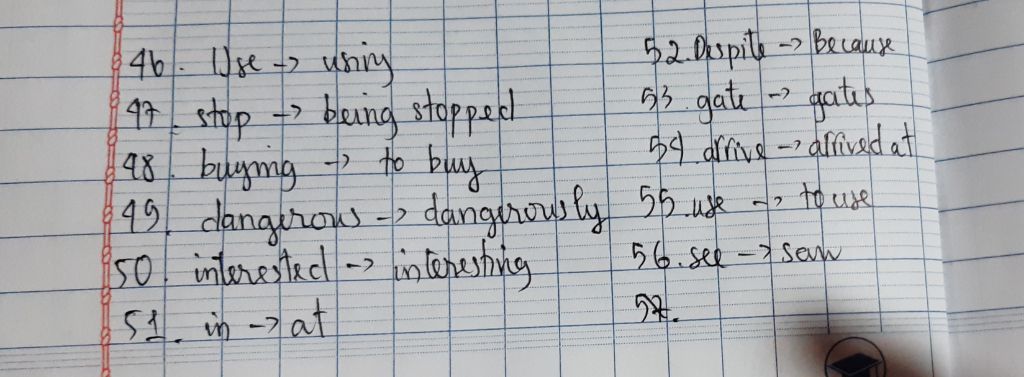 46. Use -> using
47. stop -> being stopped
48. buying -> to buy
49. dangerous -> dangerously
50. interested -> interesting
51. in -> at
52. Despite -> Because
53. gate -> gates
54. arrive -> arrived at
55. use -> to use
56. see -> saw
57.